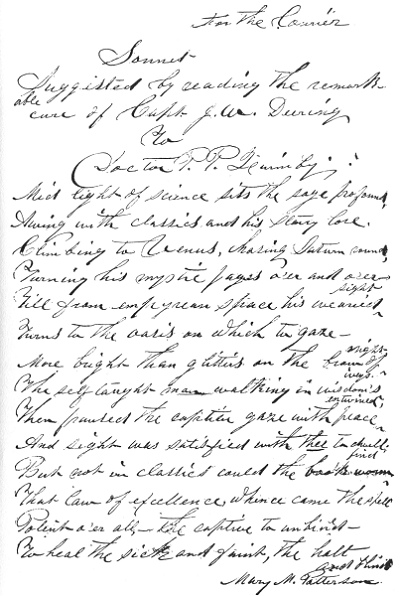 For the Courier
Sonnet
Suggested by reading the remark-
able cure of Capt J. W. Deering
To
Doctor P. P. Quimby
Mid light of science sits the sage profound,
Awing with classics and his starry lore,
Climbing to Venus, chasing Saturn round,
Turning his mystic pages o'er and o'er
Till from empyrean space his wearied sight
Turns to the oasis on which to gaze—
More bright than glitters on the brow of night
The self taught man walking in wisdom's ways.
Then paused the captive gaze with peace entwined,
And sight was satisfied with thee to dwell;
But not in classics could the book worm find
That law of excellence whence came the spell
Potent o'er all— the captive to unbind—
To heal the sick and faint, the halt and blind
Mary M. Patterson